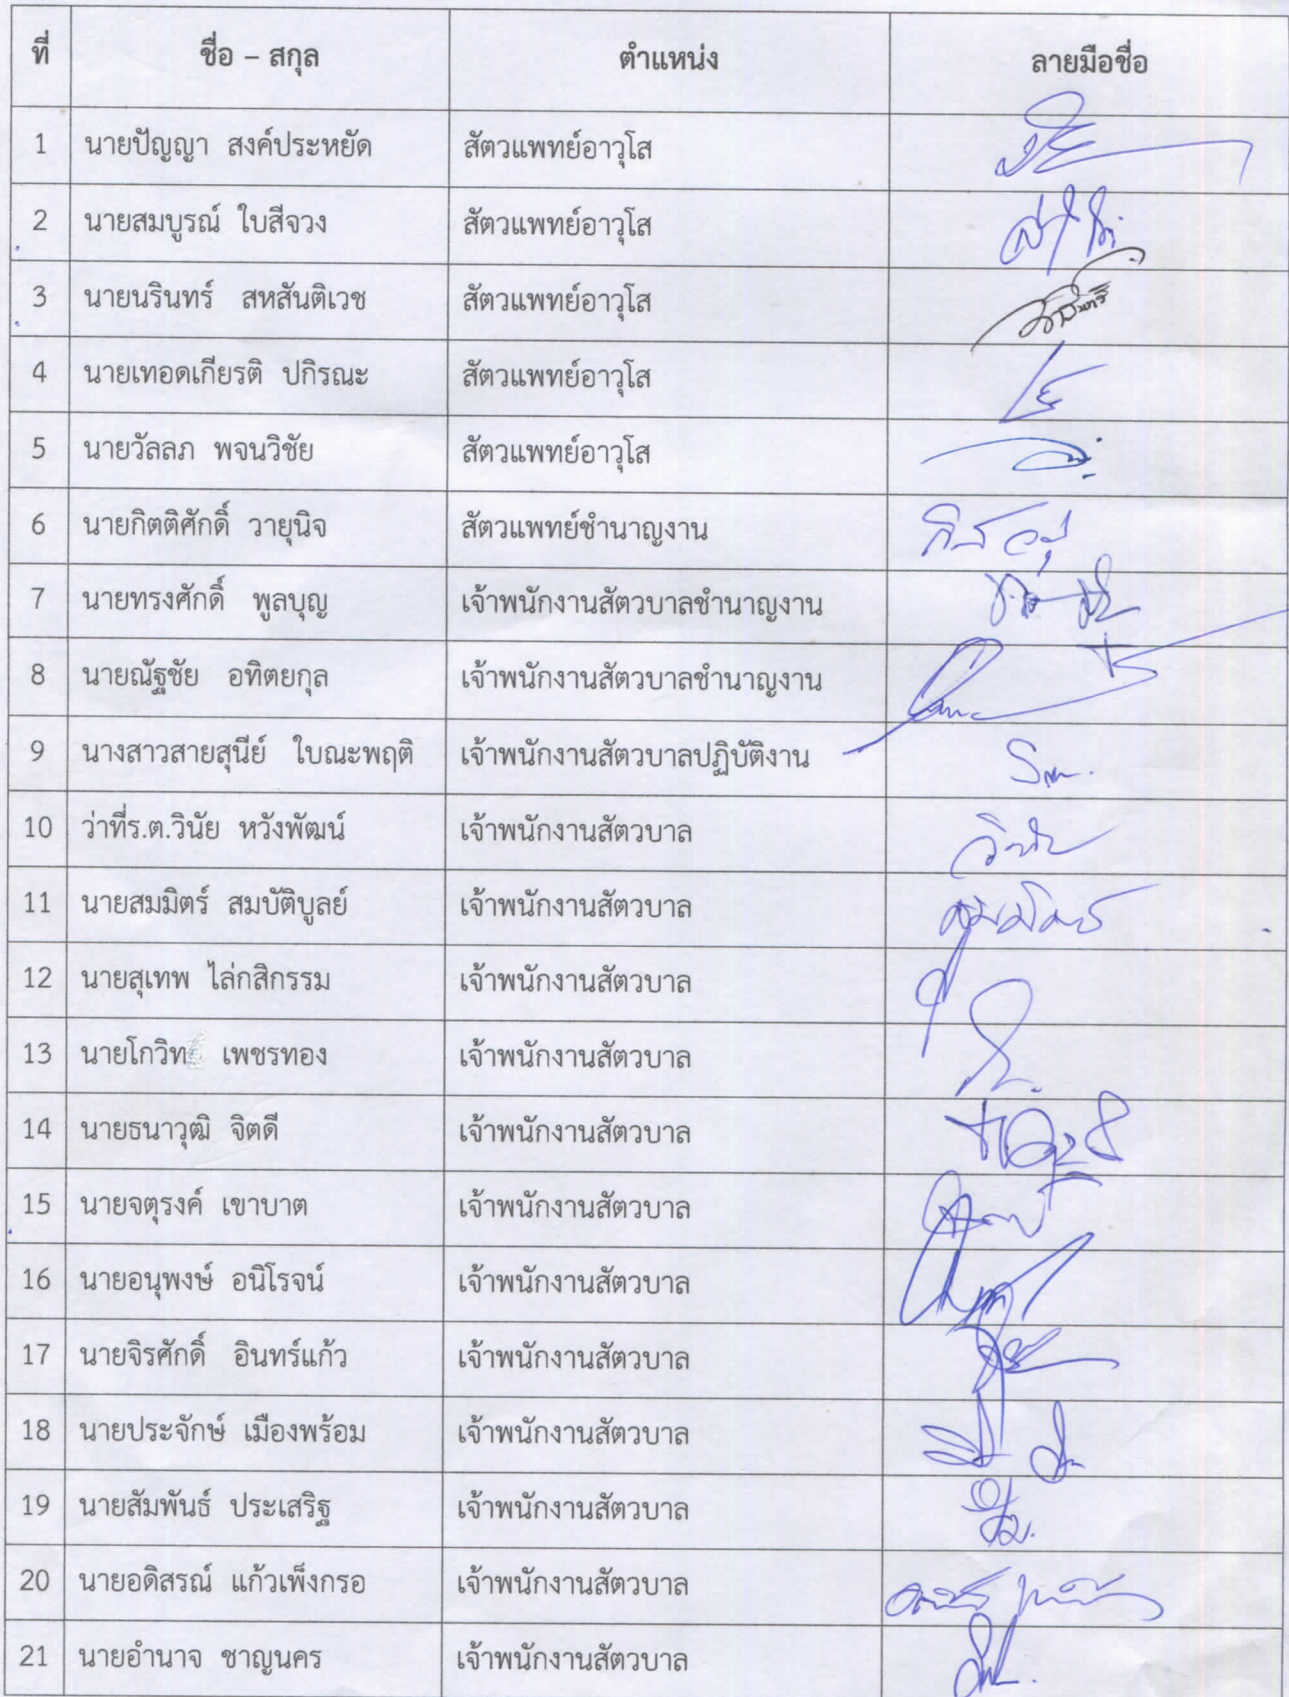 ที่ ชื่อ – สกุล ตำแหน่ง ลายมือชื่อ
1 นายปัญญา สงค์ประหยัด สัตวแพทย์อาวุโส
2 นายสมบูรณ์ ใบสีจวง สัตวแพทย์อาวุโส
3 นายนรินทร์ สหสันติเวช สัตวแพทย์อาวุโส
4 นายเทอดเกียรติ ปกิรณะ สัตวแพทย์อาวุโส
5 นายวัลลภ พจนวิชัย สัตวแพทย์อาวุโส
6 นายกิตติศักดิ์ วายุนิจ สัตวแพทย์ชำนาญงาน
7 นายทรงศักดิ์ พูลบุญ เจ้าพนักงานสัตวบาลชำนาญงาน
8 นายณัฐชัย อทิตยกุล เจ้าพนักงานสัตวบาลชำนาญงาน
9 นางสาวสายสุนีย์ ใบณะพฤติ เจ้าพนักงานสัตวบาลปฏิบัติงาน
10 ว่าที่ร.ต.วินัย หวังพัฒน์ เจ้าพนักงานสัตวบาล วินัย
11 นายสมมิตร์ สมบัติบูลย์ เจ้าพนักงานสัตวบาล สมมิตร์
12 นายสุเทพ ไล่กสิกรรม เจ้าพนักงานสัตวบาล
13 นายโกวิท เพชรทอง เจ้าพนักงานสัตวบาล
14 นายธนาวุฒิ จิตดี เจ้าพนักงานสัตวบาล
15 นายจตุรงค์ เขาบาต เจ้าพนักงานสัตวบาล
16 นายอนุพงษ์ อนิโรจน์ เจ้าพนักงานสัตวบาล
17 นายจิรศักดิ์ อินทร์แก้ว เจ้าพนักงานสัตวบาล
18 นายประจักษ์ เมืองพร้อม เจ้าพนักงานสัตวบาล
19 นายสัมพันธ์ ประเสริฐ เจ้าพนักงานสัตวบาล
20 นายอดิสรณ์ แก้วเพ็งกรอ เจ้าพนักงานสัตวบาล
21 นายอำนาจ ชาญนคร เจ้าพนักงานสัตวบาล